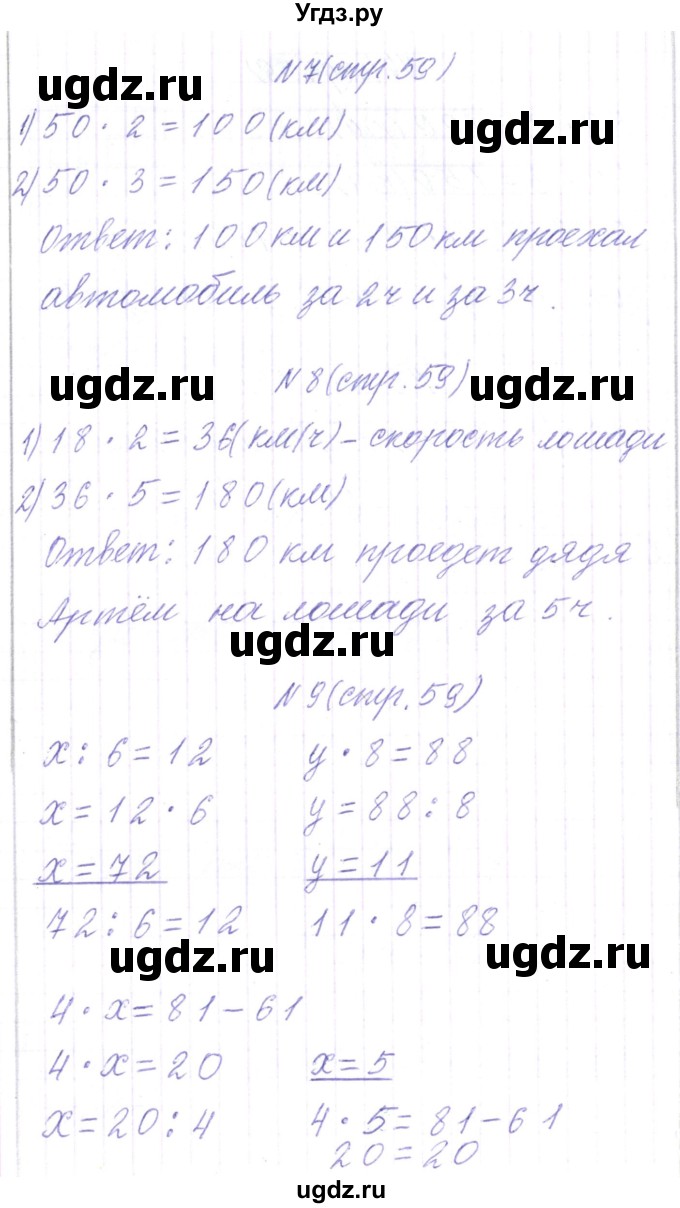 Угдз.ру
N7(стр.59)
ugdz.ru
1) 50 · 2 = 100 (км)
ugdz.ru
2) 50 · 3 = 150 (км)
Ответ: 100 км и 150 км проехал
автомобиль за 2ч и за 3ч.
ugdz.ru
N 8 (стр. 59)
ugdz.ru
1) 18 · 2 = 36 (км/ч) – скорость лошади
2) 36 · 5 = 180 (км)
Ответ: 180 км проедет дядя
Артём на лошади за 5ч.
ugdz.ru
N 9 (стр. 59)
x : 6 = 12 y · 8 = 88
x = 12 · 6 y = 88 : 8
x = 72 y = 11
72 : 6 = 12 11 · 8 = 88
ugdz.ru ugdz.ru
4 · x = 81 – 61
4 · x = 20 x = 5
x = 20 : 4 4 · 5 = 81 – 61
20 = 20
ugdz.ru